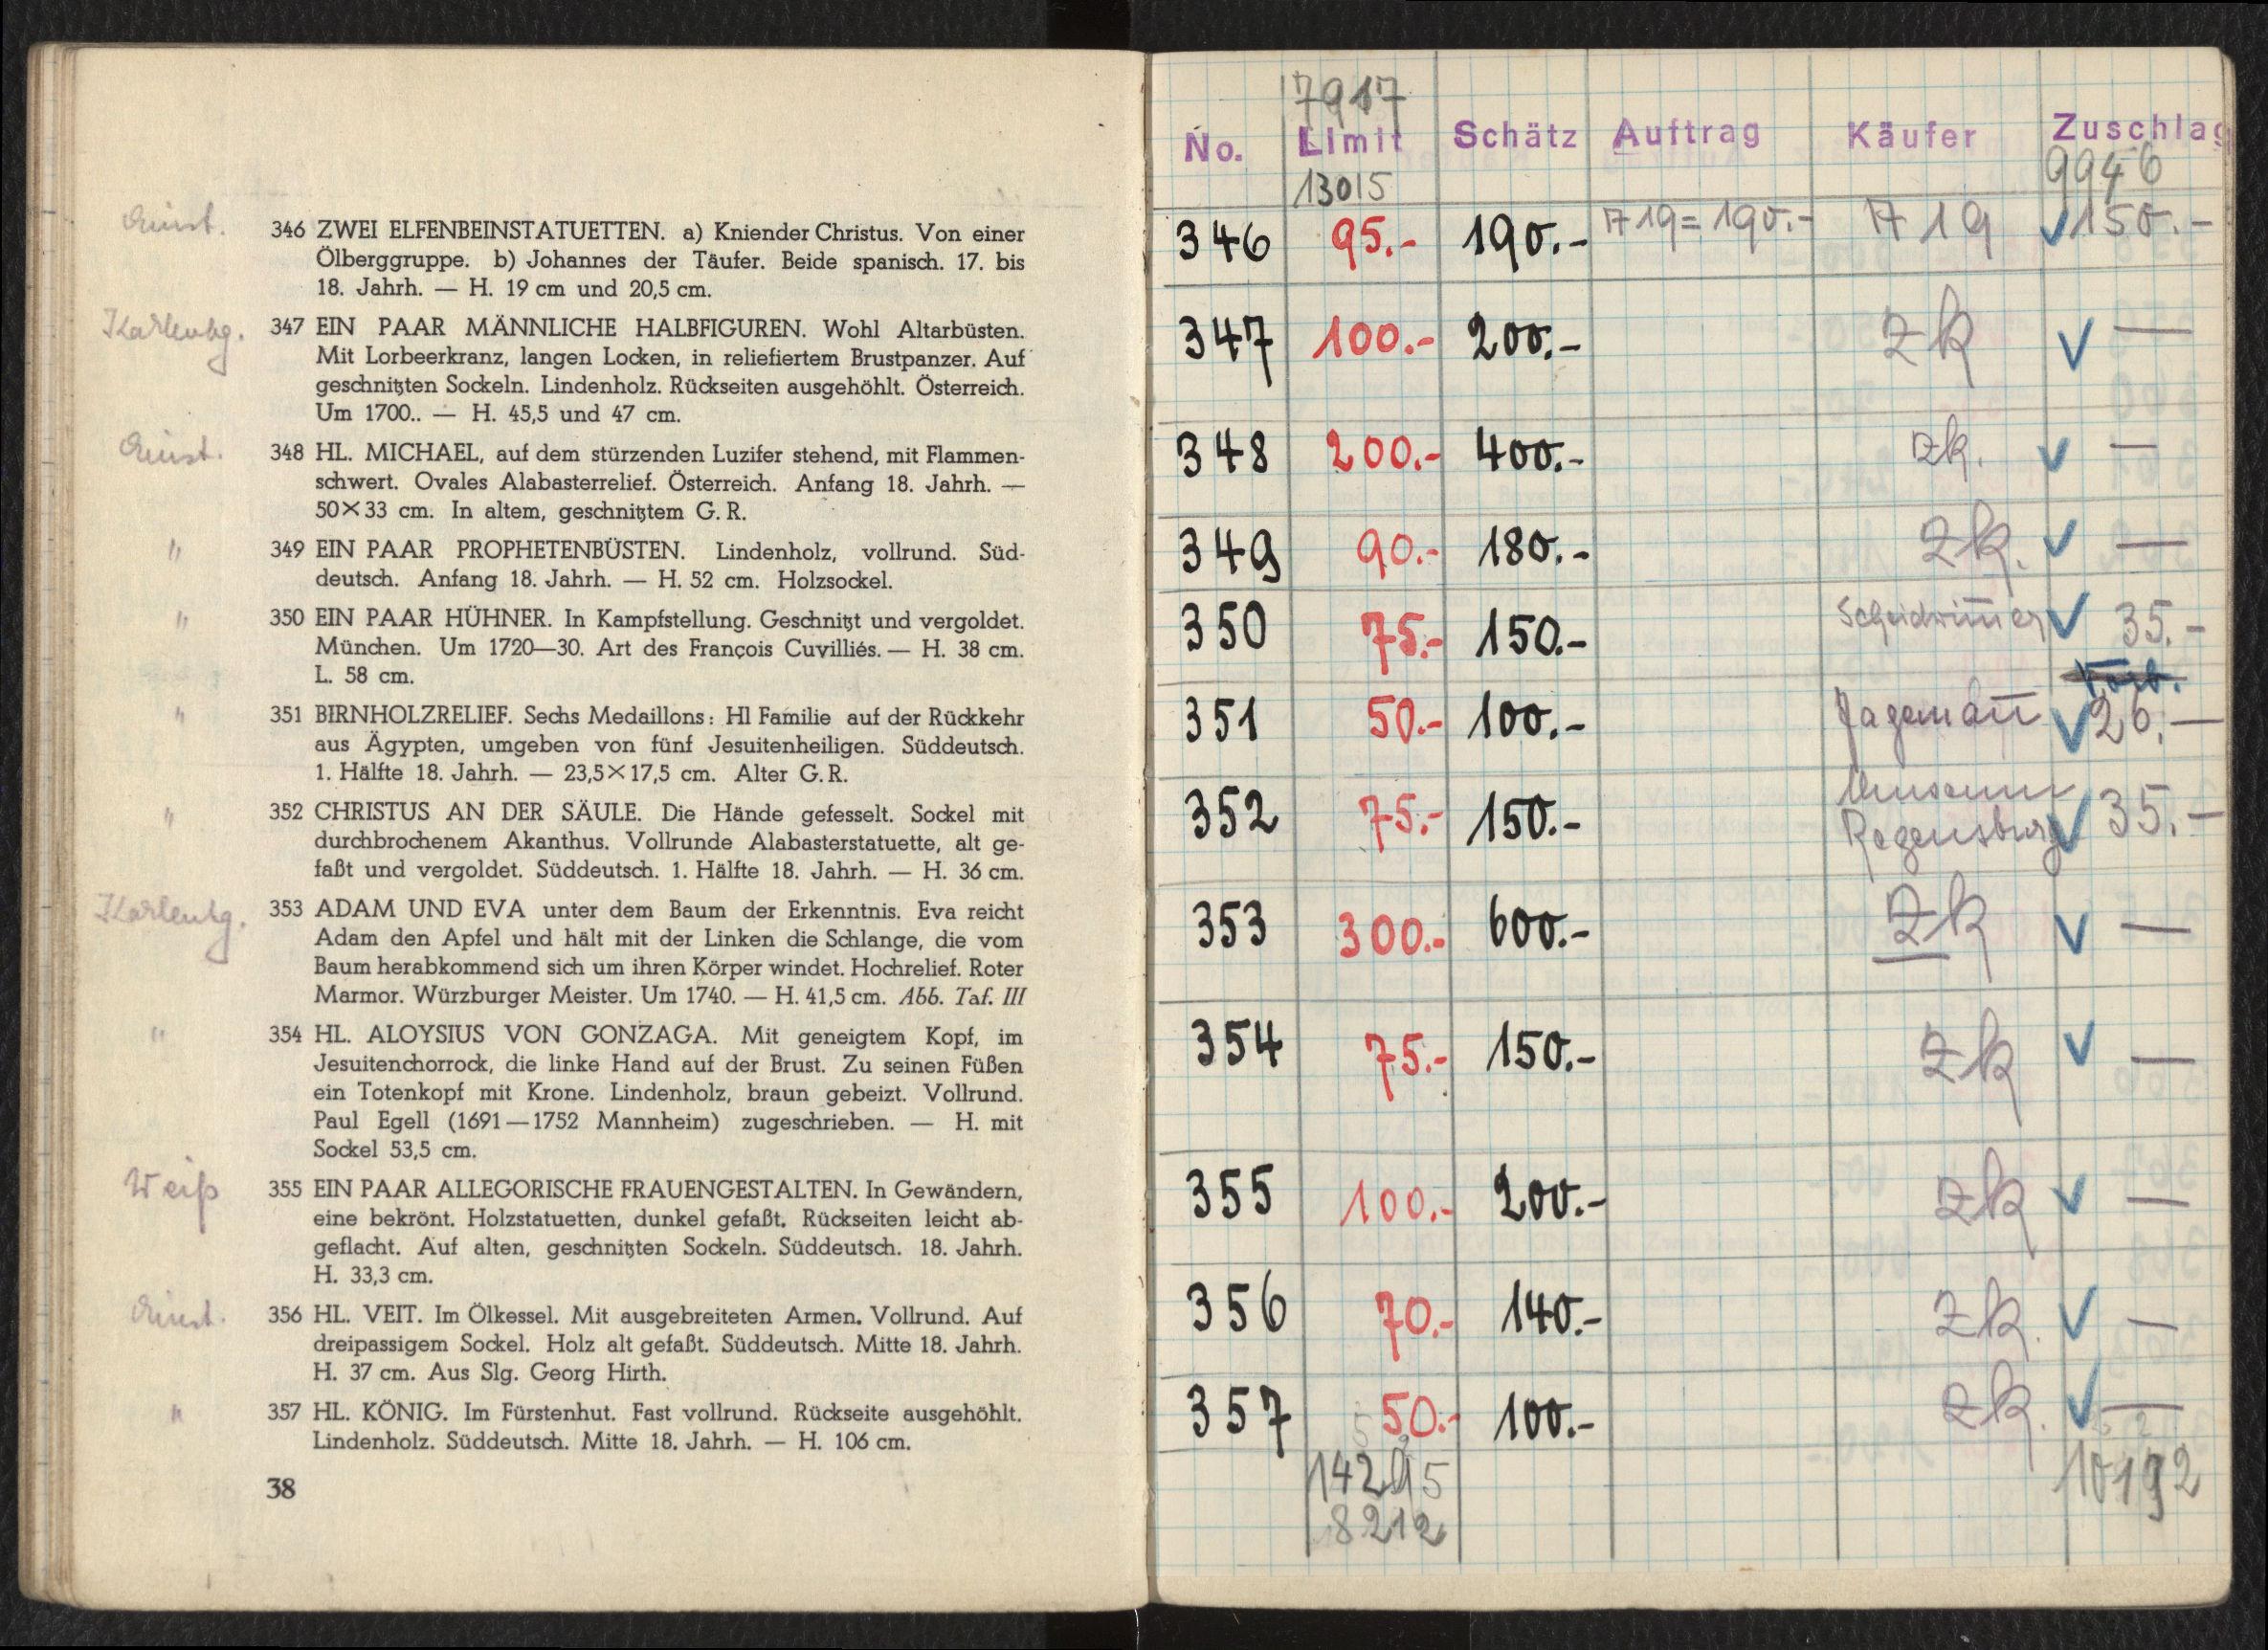 346 ZWEI ELFENBEINSTATUETTEN. a) Kniender Christus. Von einer
Ölberggruppe. b) Johannes der Täufer. Beide spanisch. 17. bis
18. Jahrh. — H. 19 cm und 20,5 cm.
347 EIN PAAR MÄNNLICHE HALBFIGUREN. Wohl Altarbüsten.
Mit Lorbeerkranz, langen Locken, in reliefiertem Brustpanzer. Auf
geschnitzten Sockeln. Lindenholz. Rückseiten ausgehöhlt. Österreich.
Um 1700.. — H. 45,5 und 47 cm.
348 HL. MICHAEL, auf dem stürzenden Luzifer stehend, mit Flammen-
schwert. Ovales Alabasterrelief. Österreich. Anfang 18. Jahrh. —
50×33 cm. In altem, geschnitztem G. R.
" 349 EIN PAAR PROPHETENBÜSTEN. Lindenholz, vollrund. Süd-
deutsch. Anfang 18. Jahrh. — H. 52 cm. Holzsockel.
" 350 EIN PAAR HÜHNER. In Kampfstellung. Geschnitzt und vergoldet.
München. Um 1720—30. Art des François Cuvilliés. — H. 38 cm.
L. 58 cm.
" 351 BIRNHOLZRELIEF. Sechs Medaillons: Hl Familie auf der Rückkehr
aus Ägypten, umgeben von fünf Jesuitenheiligen. Süddeutsch.
1. Hälfte 18. Jahrh. — 23,5×17,5 cm. Alter G. R.
" 352 CHRISTUS AN DER SÄULE. Die Hände gefesselt. Sockel mit
durchbrochenem Akanthus. Vollrunde Alabasterstatuette, alt ge-
faßt und vergoldet. Süddeutsch. 1. Hälfte 18. Jahrh. — H. 36 cm.
353 ADAM UND EVA unter dem Baum der Erkenntnis. Eva reicht
Adam den Apfel und hält mit der Linken die Schlange, die vom
Baum herabkommend sich um ihren Körper windet. Hochrelief. Roter
Marmor. Würzburger Meister. Um 1740. — H. 41,5 cm. Abb. Taf. III
" 354 HL. ALOYSIUS VON GONZAGA. Mit geneigtem Kopf, im
Jesuitenchorrock, die linke Hand auf der Brust. Zu seinen Füßen
ein Totenkopf mit Krone. Lindenholz, braun gebeizt. Vollrund.
Paul Egell (1691—1752 Mannheim) zugeschrieben. — H. mit
Sockel 53,5 cm.
Weiß 355 EIN PAAR ALLEGORISCHE FRAUENGESTALTEN. In Gewändern,
eine bekrönt. Holzstatuetten, dunkel gefaßt. Rückseiten leicht ab-
geflacht. Auf alten, geschnitzten Sockeln. Süddeutsch. 18. Jahrh.
H. 33,3 cm.
356 HL. VEIT. Im Ölkessel. Mit ausgebreiteten Armen. Vollrund. Auf
dreipassigem Sockel. Holz alt gefaßt. Süddeutsch. Mitte 18. Jahrh.
H. 37 cm. Aus Slg. Georg Hirth.
" 357 HL. KÖNIG. Im Fürstenhut. Fast vollrund. Rückseite ausgehöhlt.
Lindenholz. Süddeutsch. Mitte 18. Jahrh. — H. 106 cm.
38
7917
No. Limit Schätz Auftrag Käufer Zuschlag
13015 9946
346 95.- 190.- 719 = 190.- 719 150.-
347 100.- 200.- zk —
348 200.- 400.- zk. —
349 90.- 180.- zk. —
350 75.- 150.- 35.-
351 50.- 100.- Jagemann 26.—
352 75.- 150.- Museum Regensburg 35.—
353 300.- 600.- zk —
354 75.- 150.- zk —
355 100.- 200.- zk —
356 70.- 140.- zk. —
357 50.- 100.- zk. —
8212 10192